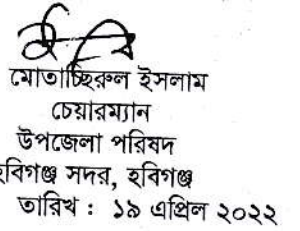 মোতাচ্ছিরুল ইসলাম
চেয়ারম্যান
উপজেলা পরিষদ
হবিগঞ্জ সদর, হবিগঞ্জ
তারিখ : ১৯ এপ্রিল ২০২২